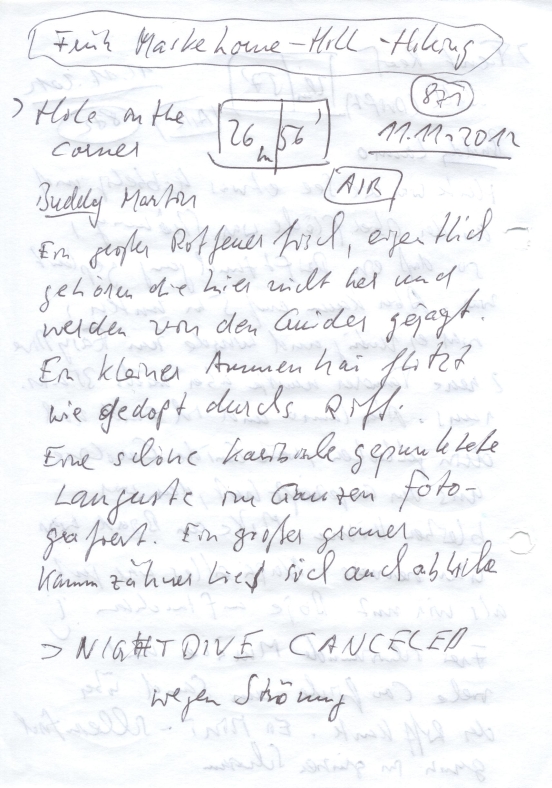 Früh Maskelowne-Hill-Hiking
> Hole in the
corner
26 m 56'
871
11.11.2012
AIR
Buddy Marton
Ein großer Rotfeuerfisch, eigentlich
gehören die hier nicht her und
werden von den Guides gejagt.
Ein kleiner Ammenhai flitzt
wie gedopt durchs Riff.
Eine schöne karibische gepunktete
Languste im Ganzen foto-
grafiert. Ein großer grauer
Kammzähner ließ sich auch ablichte
> NIGHTDIVE CANCELED
wegen Strömung